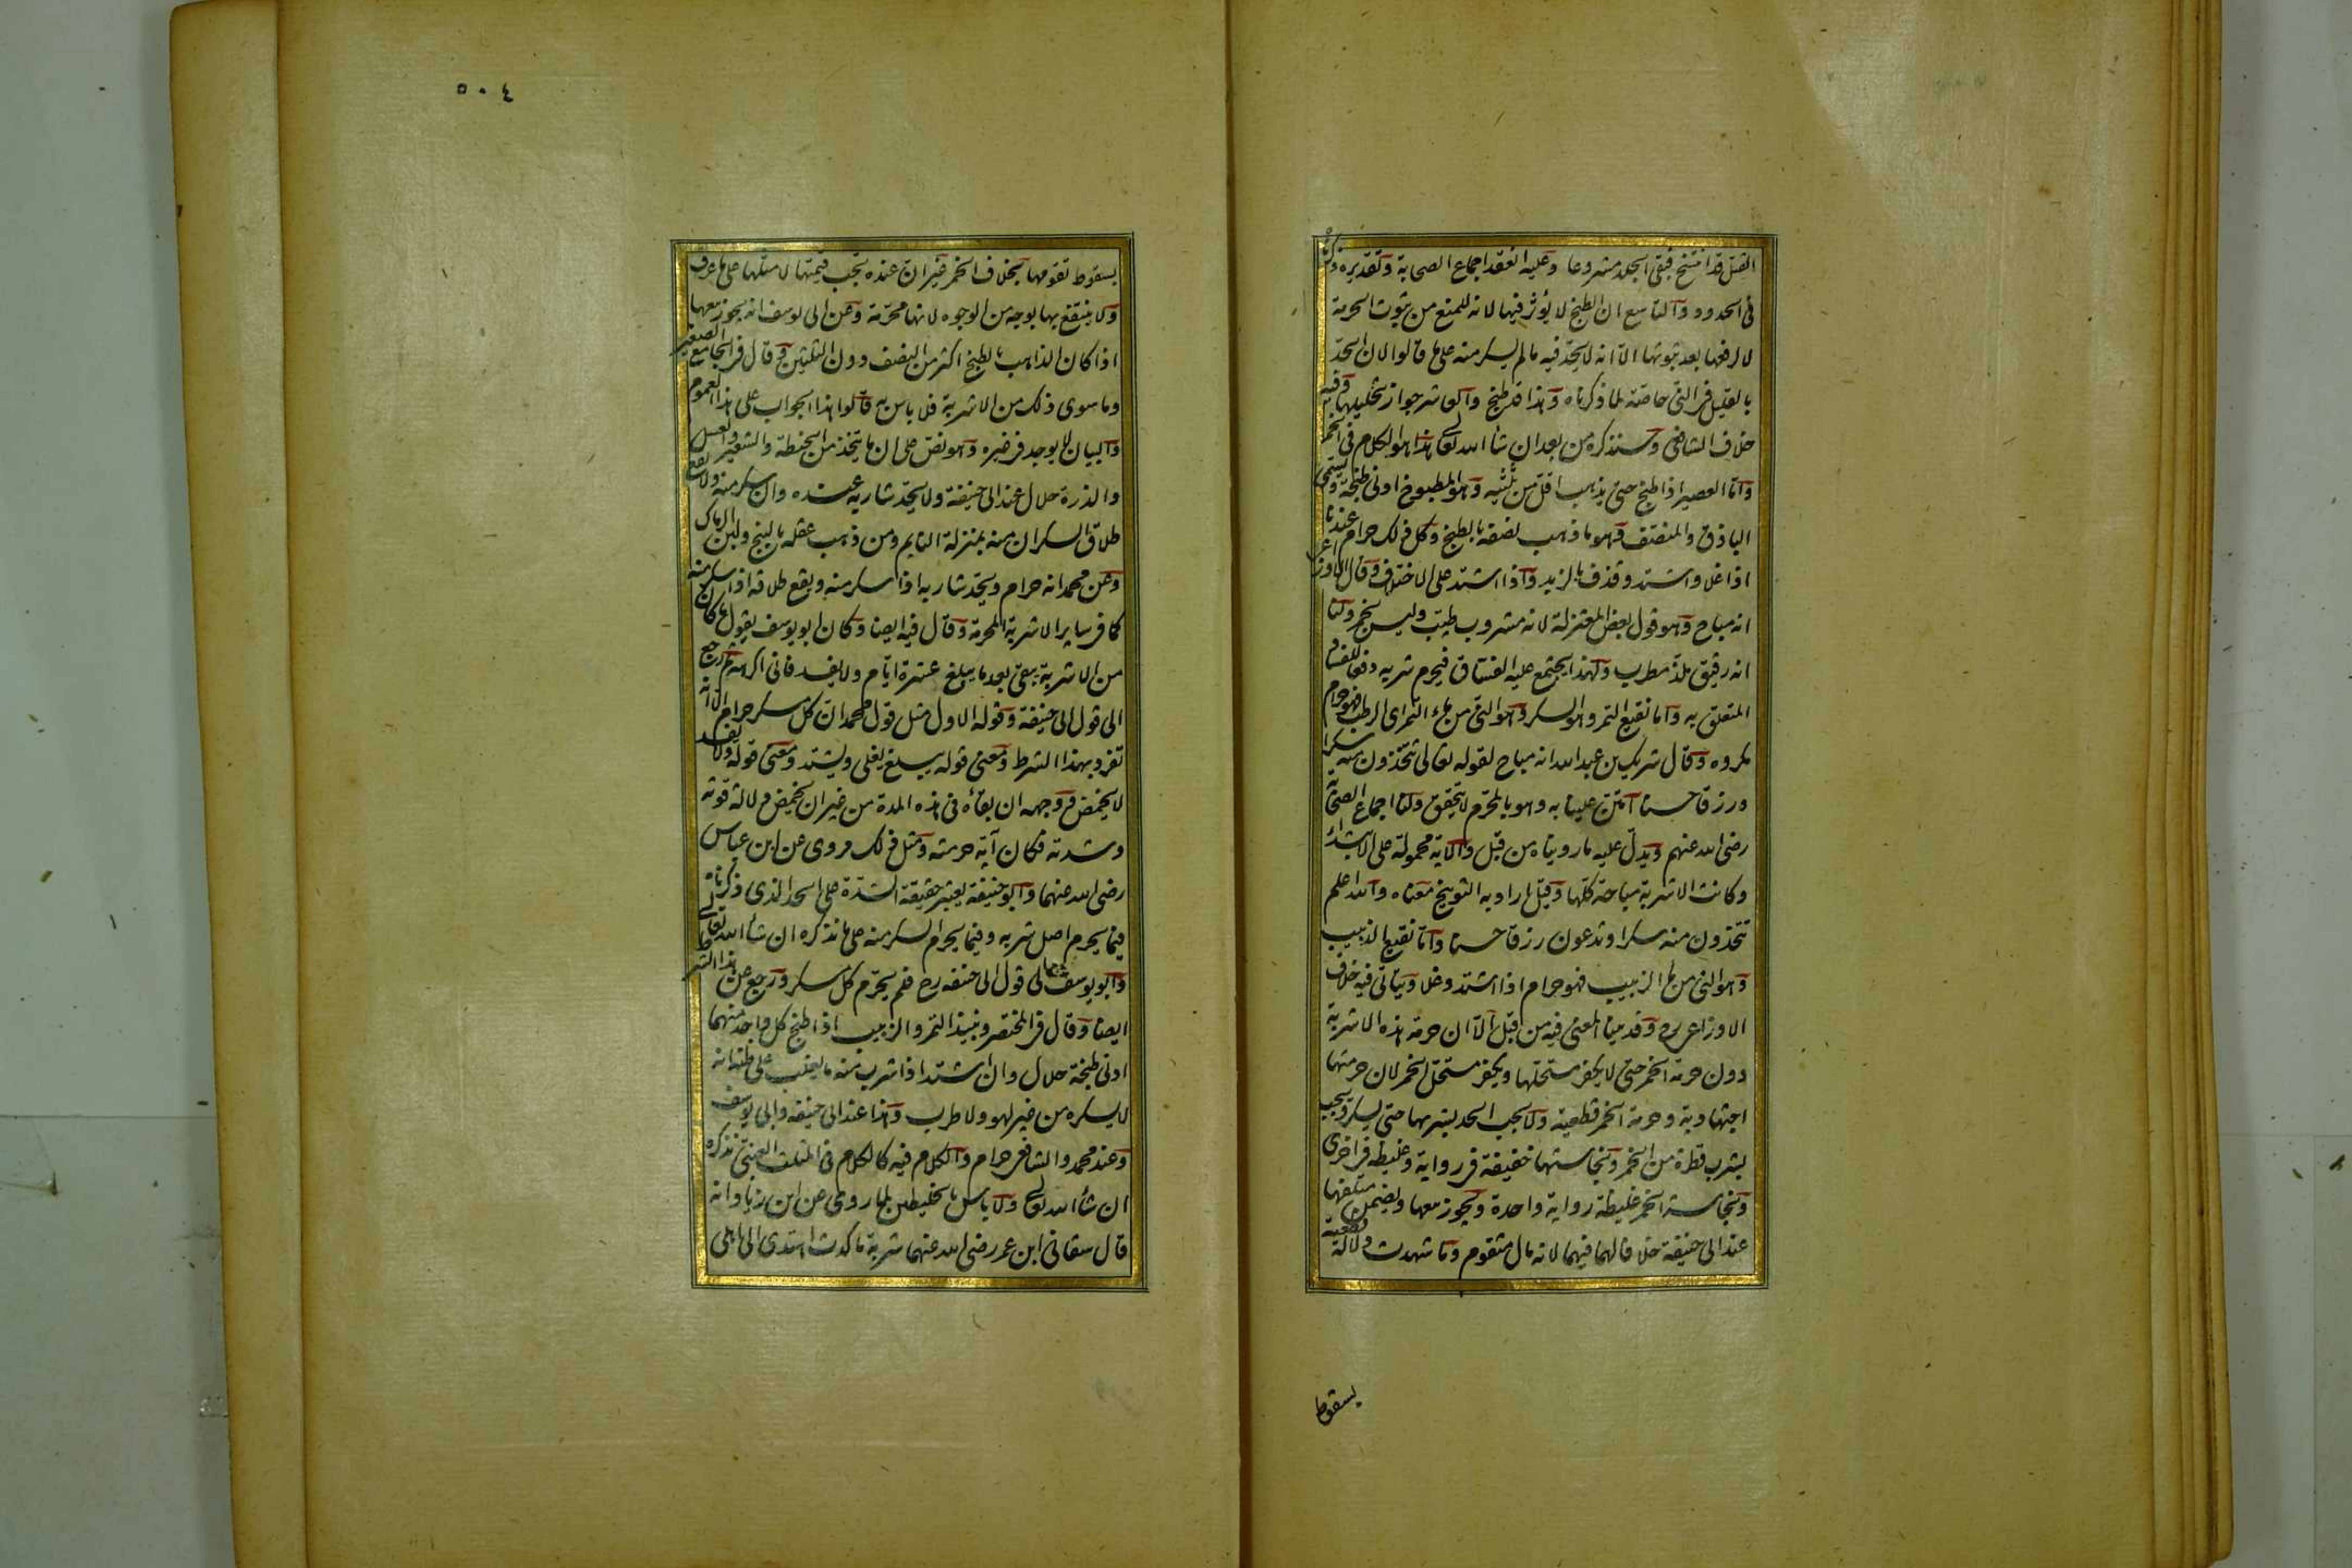 القتل قد انتسخ فبقى الجلد مشروعا وعليه انعقد اجماع الصحابة وتقديره ذكرناه
فى الحدود والتاسع ان الطبخ لا يؤثر فيها لانه للمنع من ثبوت الحرمة
لا لرفعها بعد ثبوتها الا انه لا يحد فيه ما لم يسكر منه على ما قالوا لان الحد
بالقليل فى النى خاصة لما ذكرناه وهذا قد طبخ والعاشر جواز تخليلها وفيه
خلاف الشافعى وسنذكره من بعد ان شاء الله تعالى هذا هو الكلام فى الخمر
واما العصير اذا طبخ حتى يذهب اقل من ثلثيه وهو المطبوخ ادنى طبخة ويسمى
الباذق والمنصف وهو ما ذهب نصفه بالطبخ وكل ذلك حرام عندنا
اذا غلا واشتد وقذف بالزبد واذا اشتد على الاختلاف وقال الاوزاعى
انه مباح وهو قول بعض المعتزلة لانه مشروب طيب وليس بخمر ولنا
انه رقيق ملذ مطرب ولهذا يجتمع عليه الفساق فيحرم شربه دفعا للفساد
المتعلق به واما نقيع التمر وهو السكر وهو النى من ماء التمر اى الرطب فهو حرام
مكروه وقال شريك بن عبد الله انه مباح لقوله تعالى تتخذون منه سكرا
ورزقا حسنا امتن علينا به وهو بالمحرم لا يتحقق ولنا اجماع الصحابة
رضى الله عنهم ويدل عليه ما رويناه من قبل والآية محمولة على الابتداء
وكانت الاشربة مباحة كلها وقيل اراد به التوبيخ معناه والله اعلم
تتخذون منه سكرا وتدعون رزقا حسنا واما نقيع الزبيب
وهو النى من ماء الزبيب فهو حرام اذا اشتد وغلا ويتاتى فيه خلاف
الاوزاعى رح وقد بينا المعنى فيه من قبل الا ان حرمة هذه الاشربة
دون حرمة الخمر حتى لا يكفر مستحلها ويكفر مستحل الخمر لان حرمتها
اجتهادية وحرمة الخمر قطعية ولا يجب الحد بشربها حتى يسكر ويجب
بشرب قطرة من الخمر ونجاستها خفيفة فى رواية وغليظة فى اخرى
ونجاسة الخمر غليظة رواية واحدة ويجوز بيعها ويضمن متلفها
عند ابى حنيفة خلافا لهما فيهما لانه مال متقوم وما شهدت دلالة قطعية
بسقوط
٥٠٤
بسقوط تقومها بخلاف الخمر غير ان عنده يجب قيمتها لا مثلها على ما عرف
ولا ينتفع بها بوجه من الوجوه لانها محرمة وعن ابى يوسف انه يجوز بيعها
اذا كان الذاهب بالطبخ اكثر من النصف دون الثلثين وقال فى الجامع الصغير
وما سوى ذلك من الاشربة فلا باس به قالوا هذا الجواب على هذا العموم
والبيان لا يوجد فى غيره وهو نص على ان ما يتخذ من الحنطة والشعير والعسل
والذرة حلال عند ابى حنيفة ولا يحد شاربه عنده وان سكر منه ولا يقع
طلاق السكران منه بمنزلة النايم ومن ذهب عقله بالبنج ولبن الرماك
وعن محمد انه حرام ويحد شاربه اذا سكر منه ويقع طلاقه اذا سكر منه
كما فى ساير الاشربة المحرمة وقال فيه ايضا وكان ابو يوسف يقول ما كان
من الاشربة يبقى بعد ما يبلغ عشرة ايام ولا يفسد فانى اكرهه ثم رجع
الى قول ابى حنيفة وقوله الاول مثل قول محمد ان كل مسكر حرام الا انه
تفرد بهذا الشرط ومعنى قوله يبلغ يغلى ويشتد ومعنى قوله ولا يفسد
لا يحمض ووجهه ان بقاءه فى هذه المدة من غير ان يحمض دلالة قوته
وشدته فكان آية حرمته ومثل ذلك مروى عن ابن عباس
رضى الله عنهما وابو حنيفة يعتبر حقيقة الشدة على الحد الذى ذكرناه
فيما يحرم اصل شربه وفيما يحرم السكر منه على ما نذكره ان شاء الله تعالى
وابو يوسف رجع الى قول ابى حنيفه رح فلم يحرم كل مسكر ورجع عن هذا الشرط
ايضا وقال فى المختصر ونبيذ التمر والزبيب اذا طبخ كل واحد منهما
ادنى طبخة حلال وان اشتد اذا شرب منه ما يغلب على ظنه انه
لا يسكره من غير لهو ولا طرب وهذا عند ابى حنيفه وابى يوسف
وعند محمد والشافعى حرام والكلام فيه كالكلام فى المثلث العنبى نذكره
ان شاء الله تعالى ولا باس بالخليطين لما روى عن ابن زياد انه
قال سقانى ابن عمر رضى الله عنهما شربة ما كدت اهتدى الى اهلى